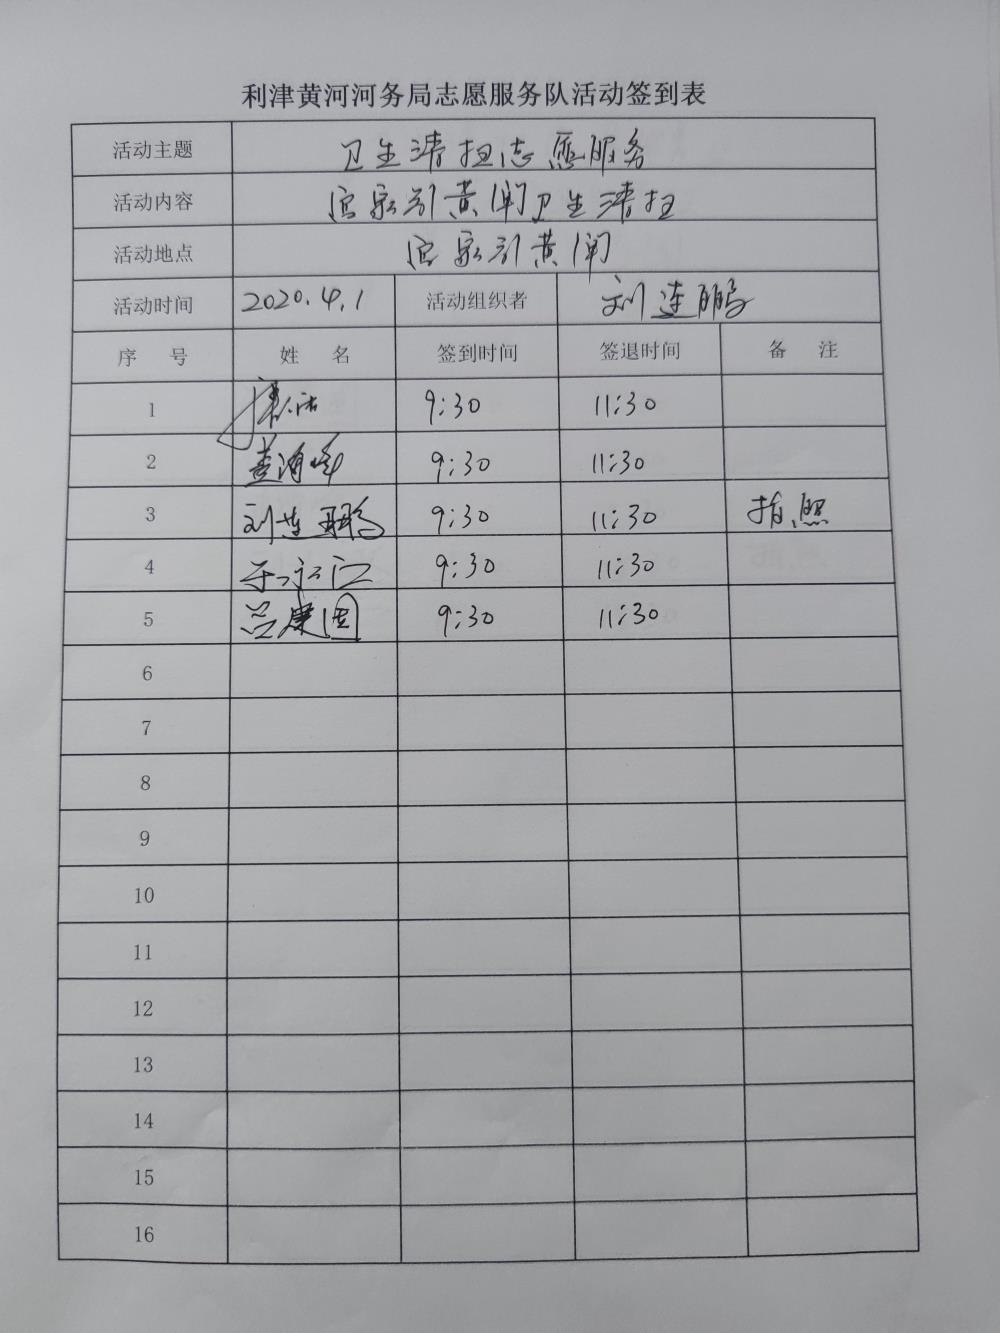 利津黄河河务局志愿服务队活动签到表
活动主题 卫生清扫志愿服务
活动内容 宫家引黄闸卫生清扫
活动地点 宫家引黄闸
活动时间 2020.4.1 活动组织者 刘连鹏
序 号 姓 名 签到时间 签退时间 备 注
1 9:30 11:30
2 黄海峰 9:30 11:30
3 刘连鹏 9:30 11:30 拍照
4 于永江 9:30 11:30
5 吕建国 9:30 11:30
6
7
8
9
10
11
12
13
14
15
16